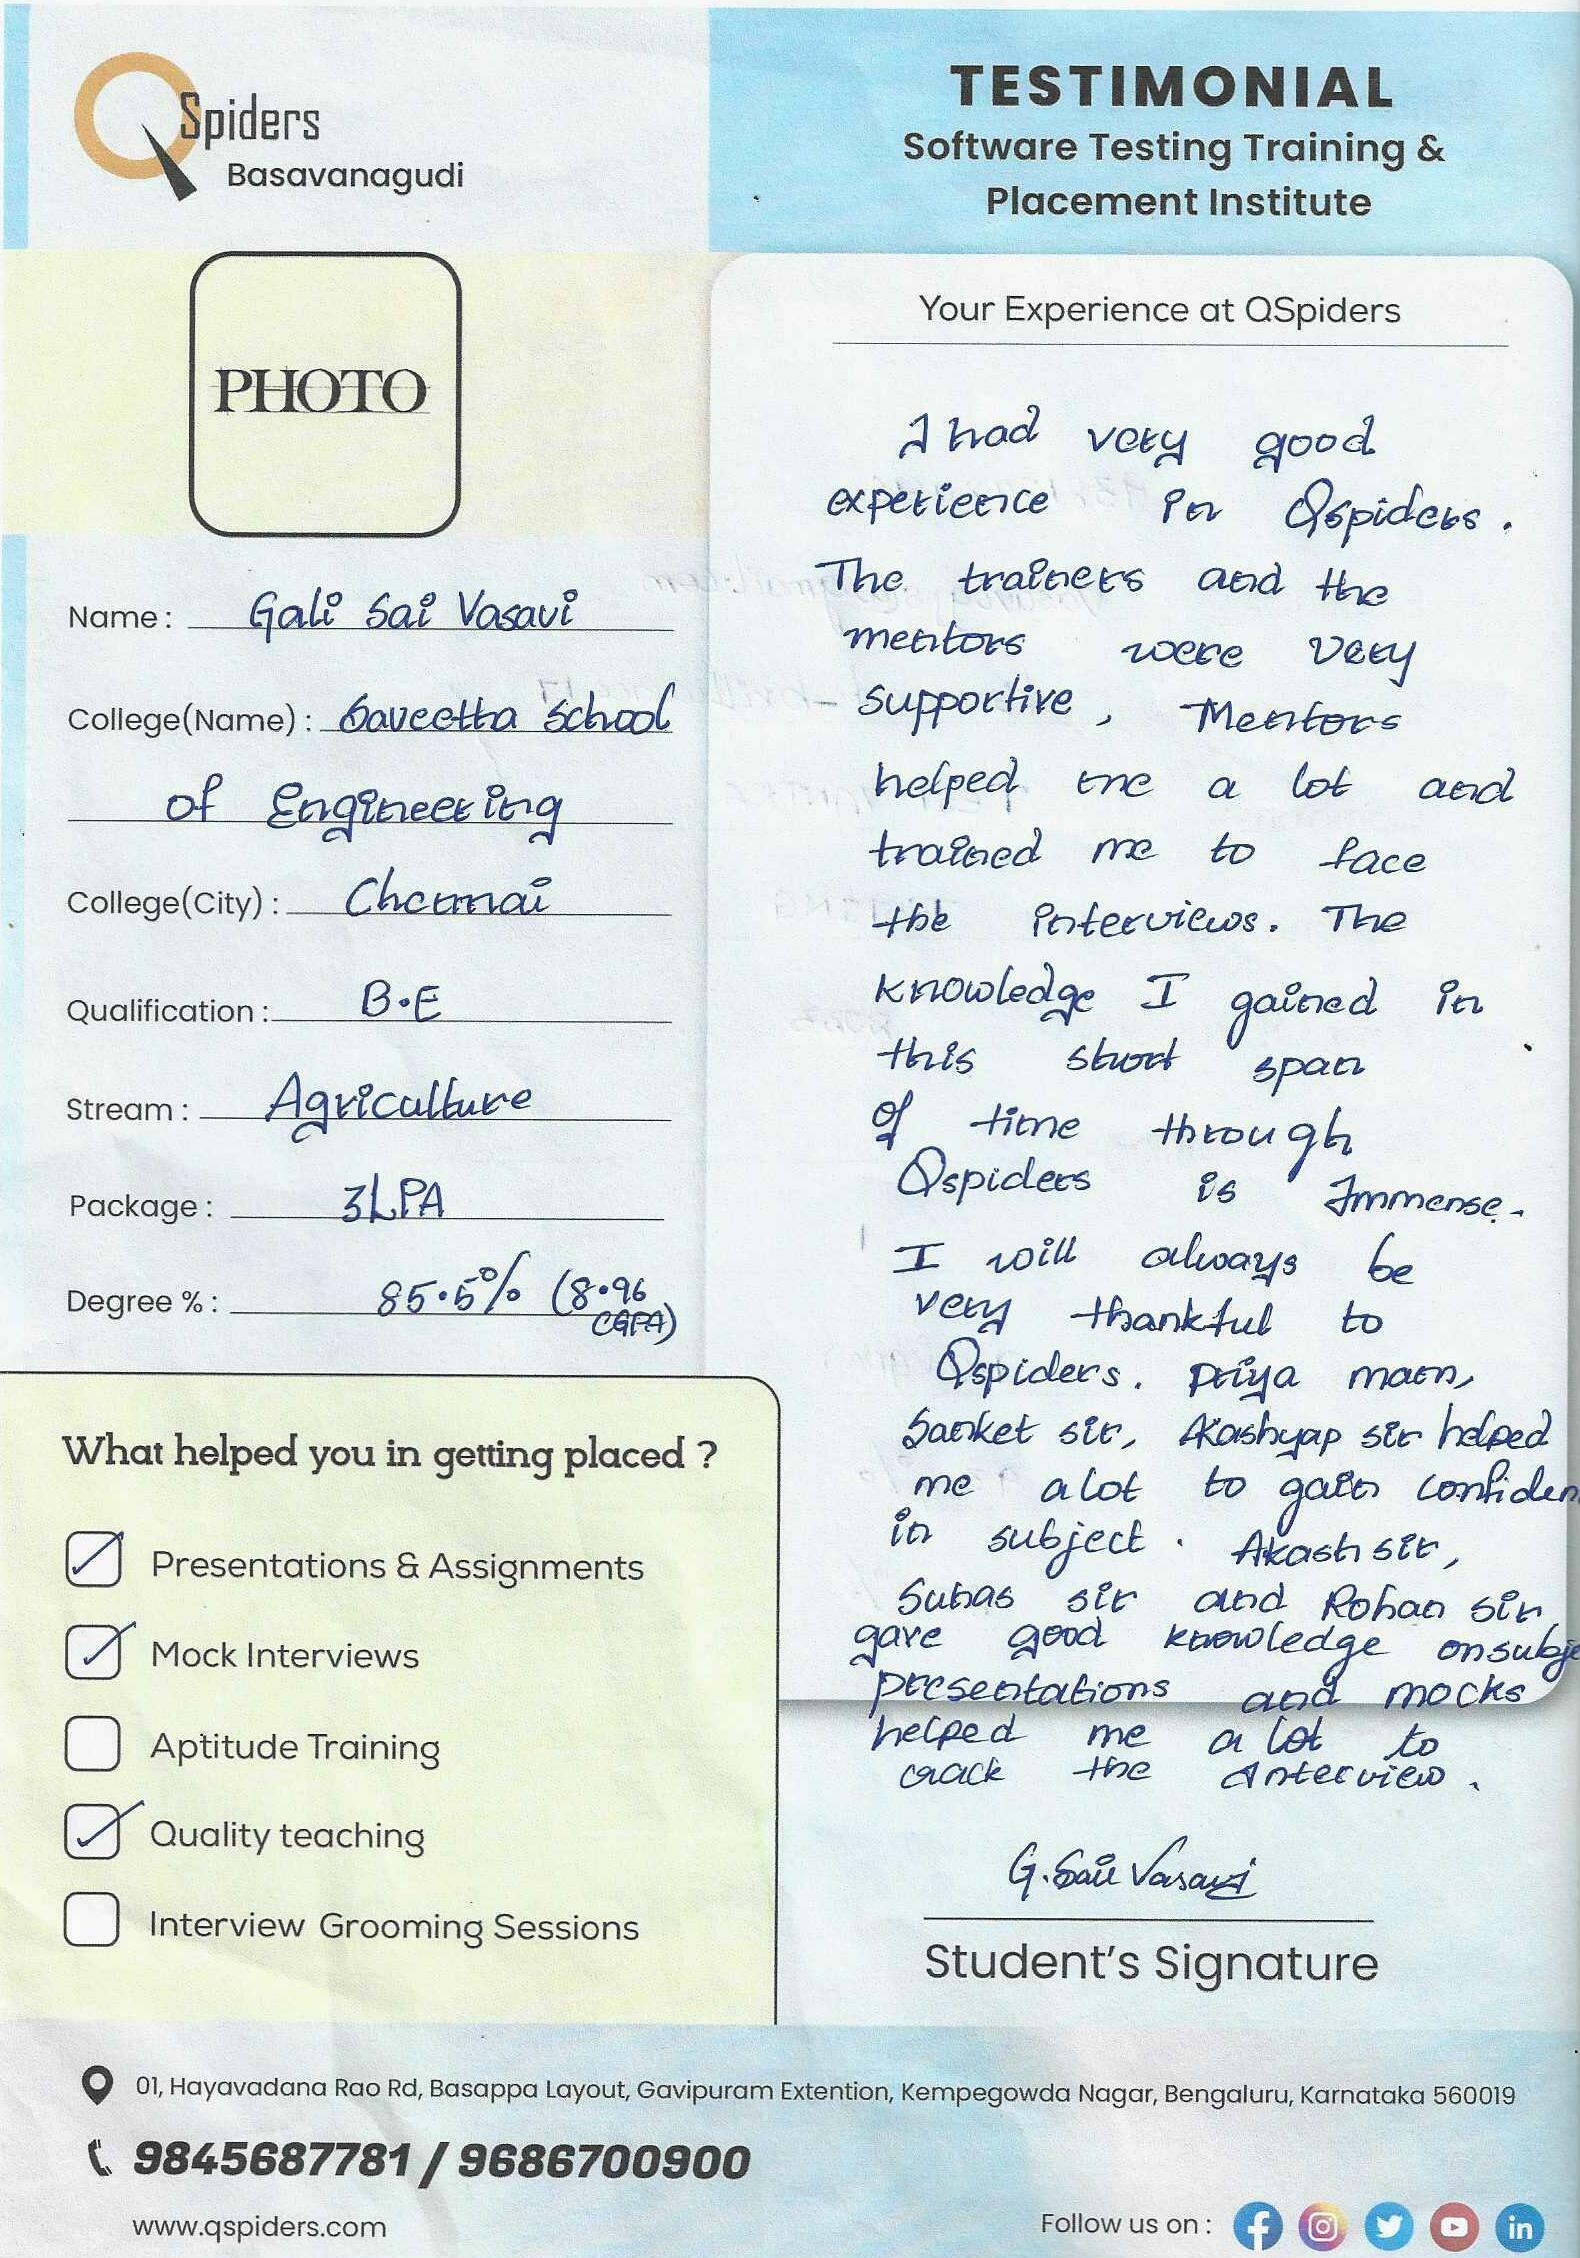 QSpiders
Basavanagudi
TESTIMONIAL
Software Testing Training &
Placement Institute
PHOTO
Name : Gali Sai Vasavi
College(Name) : Saveetha School
of Engineering
College(City) : Chennai
Qualification : B.E
Stream : Agriculture
Package : 3LPA
Degree % : 85.5% (8.96
CGPA)
What helped you in getting placed ?
Presentations & Assignments
Mock Interviews
Aptitude Training
Quality teaching
Interview Grooming Sessions
Your Experience at QSpiders
I had very good
experience in Qspiders.
The trainers and the
mentors were very
supportive, Mentors
helped me a lot and
trained me to face
the interviews. The
knowledge I gained in
this short span
of time through
Qspiders is Immense.
I will always be
very thankful to
Qspiders. Priya mam,
Sanket sir, Akashyap sir helped
me alot to gain confiden
in subject. Akash sir,
Suhas sir and Rohan sir
gave good knowledge on subje
presentations and mocks
helped me a lot to
crack the Interview.
G. Sai Vasavi
Student's Signature
01, Hayavadana Rao Rd, Basappa Layout, Gavipuram Extention, Kempegowda Nagar, Bengaluru, Karnataka 560019
9845687781 / 9686700900
www.qspiders.com
Follow us on :